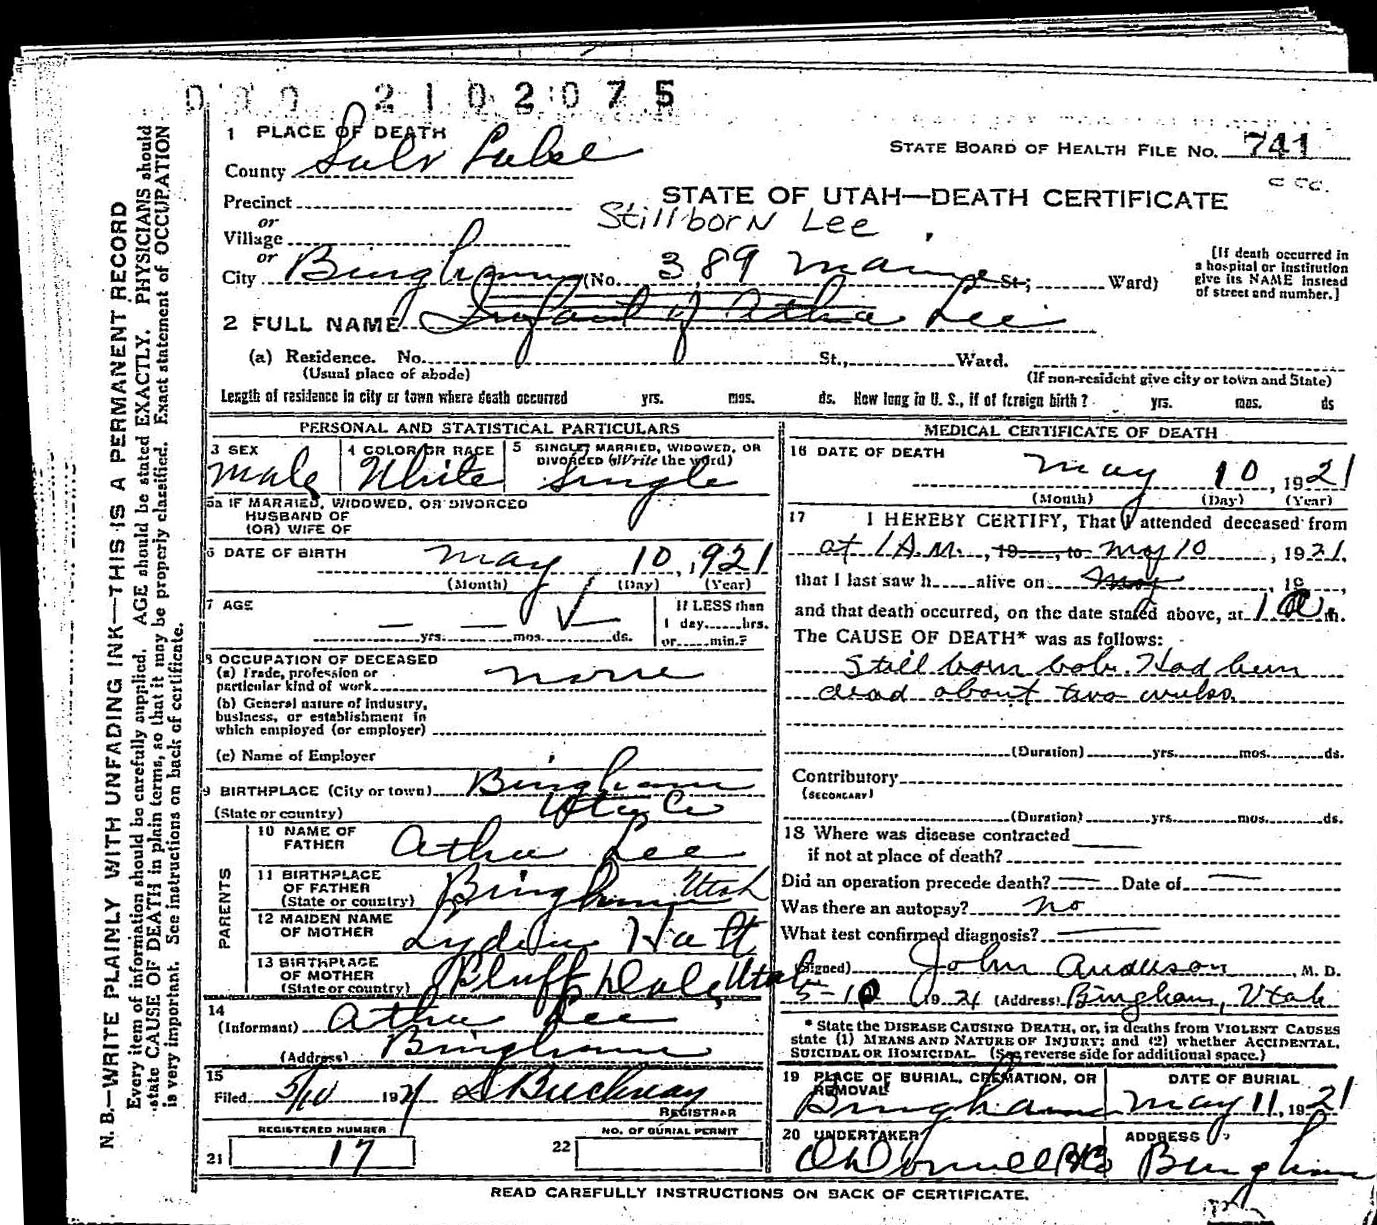 000 2102075
1 PLACE OF DEATH
County Salt Lake
STATE BOARD OF HEALTH FILE NO. 741
Precinct
STATE OF UTAH—DEATH CERTIFICATE
or
Stillborn Lee
Village
or
City Bingham (No. 389 Main St; Ward)
[If death occurred in
a hospital or institution
give its NAME instead
of street and number.]
2 FULL NAME Infant of Atha Lee
(a) Residence. No. St., Ward.
(Usual place of abode)
(If non-resident give city or town and State)
Length of residence in city or town where death occurred yrs. mos. ds. How long in U. S., if of foreign birth? yrs. mos. ds
N. B.—WRITE PLAINLY WITH UNFADING INK—THIS IS A PERMANENT RECORD
Every item of information should be carefully supplied. AGE should be stated EXACTLY. PHYSICIANS should
state CAUSE OF DEATH in plain terms, so that it may be properly classified. Exact statement of OCCUPATION
is very important. See instructions on back of certificate.
PERSONAL AND STATISTICAL PARTICULARS
3 SEX
Male
4 COLOR OR RACE
White
5 SINGLE, MARRIED, WIDOWED, OR
DIVORCED (Write the word)
Single
5a IF MARRIED, WIDOWED, OR DIVORCED
HUSBAND OF
(OR) WIFE OF
6 DATE OF BIRTH May 10, 1921
(Month) (Day) (Year)
7 AGE
— yrs. — mos. — ds.
If LESS than
1 day hrs.
or min.?
8 OCCUPATION OF DECEASED
(a) Trade, profession or
particular kind of work none
(b) General nature of industry,
business, or establishment in
which employed (or employer)
(c) Name of Employer
9 BIRTHPLACE (City or town) Bingham
(State or country)
PARENTS
10 NAME OF
FATHER Atha Lee
11 BIRTHPLACE
OF FATHER
(State or country) Bingham Utah
12 MAIDEN NAME
OF MOTHER
13 BIRTHPLACE
OF MOTHER
(State or country) Bluff Dale, Utah
14
(Informant) Atha Lee
(Address) Bingham
15
Filed 5/10 1921
REGISTRAR
REGISTERED NUMBER
21 17
NO. OF BURIAL PERMIT
22
MEDICAL CERTIFICATE OF DEATH
16 DATE OF DEATH
May 10, 1921
(Month) (Day) (Year)
17 I HEREBY CERTIFY, That I attended deceased from
at 1 A.M., 19 , to May 10, 1921,
that I last saw h alive on May , 19 ,
and that death occurred, on the date stated above, at 1 a m.
The CAUSE OF DEATH* was as follows:
Still born babe. Had been
dead about two weeks.
(Duration) yrs. mos. ds.
Contributory
(SECONDARY)
(Duration) yrs. mos. ds.
18 Where was disease contracted
if not at place of death?
Did an operation precede death? — Date of —
Was there an autopsy? no
What test confirmed diagnosis? —
(Signed) John Anderson, M. D.
5-10 1921 (Address) Bingham, Utah
* State the DISEASE CAUSING DEATH, or, in deaths from VIOLENT CAUSES
state (1) MEANS AND NATURE OF INJURY; and (2) whether ACCIDENTAL,
SUICIDAL OR HOMICIDAL. (See reverse side for additional space.)
19 PLACE OF BURIAL, CREMATION, OR
REMOVAL
Bingham
DATE OF BURIAL
May 11, 1921
20 UNDERTAKER
O'Donnell
ADDRESS
Bingham
READ CAREFULLY INSTRUCTIONS ON BACK OF CERTIFICATE.